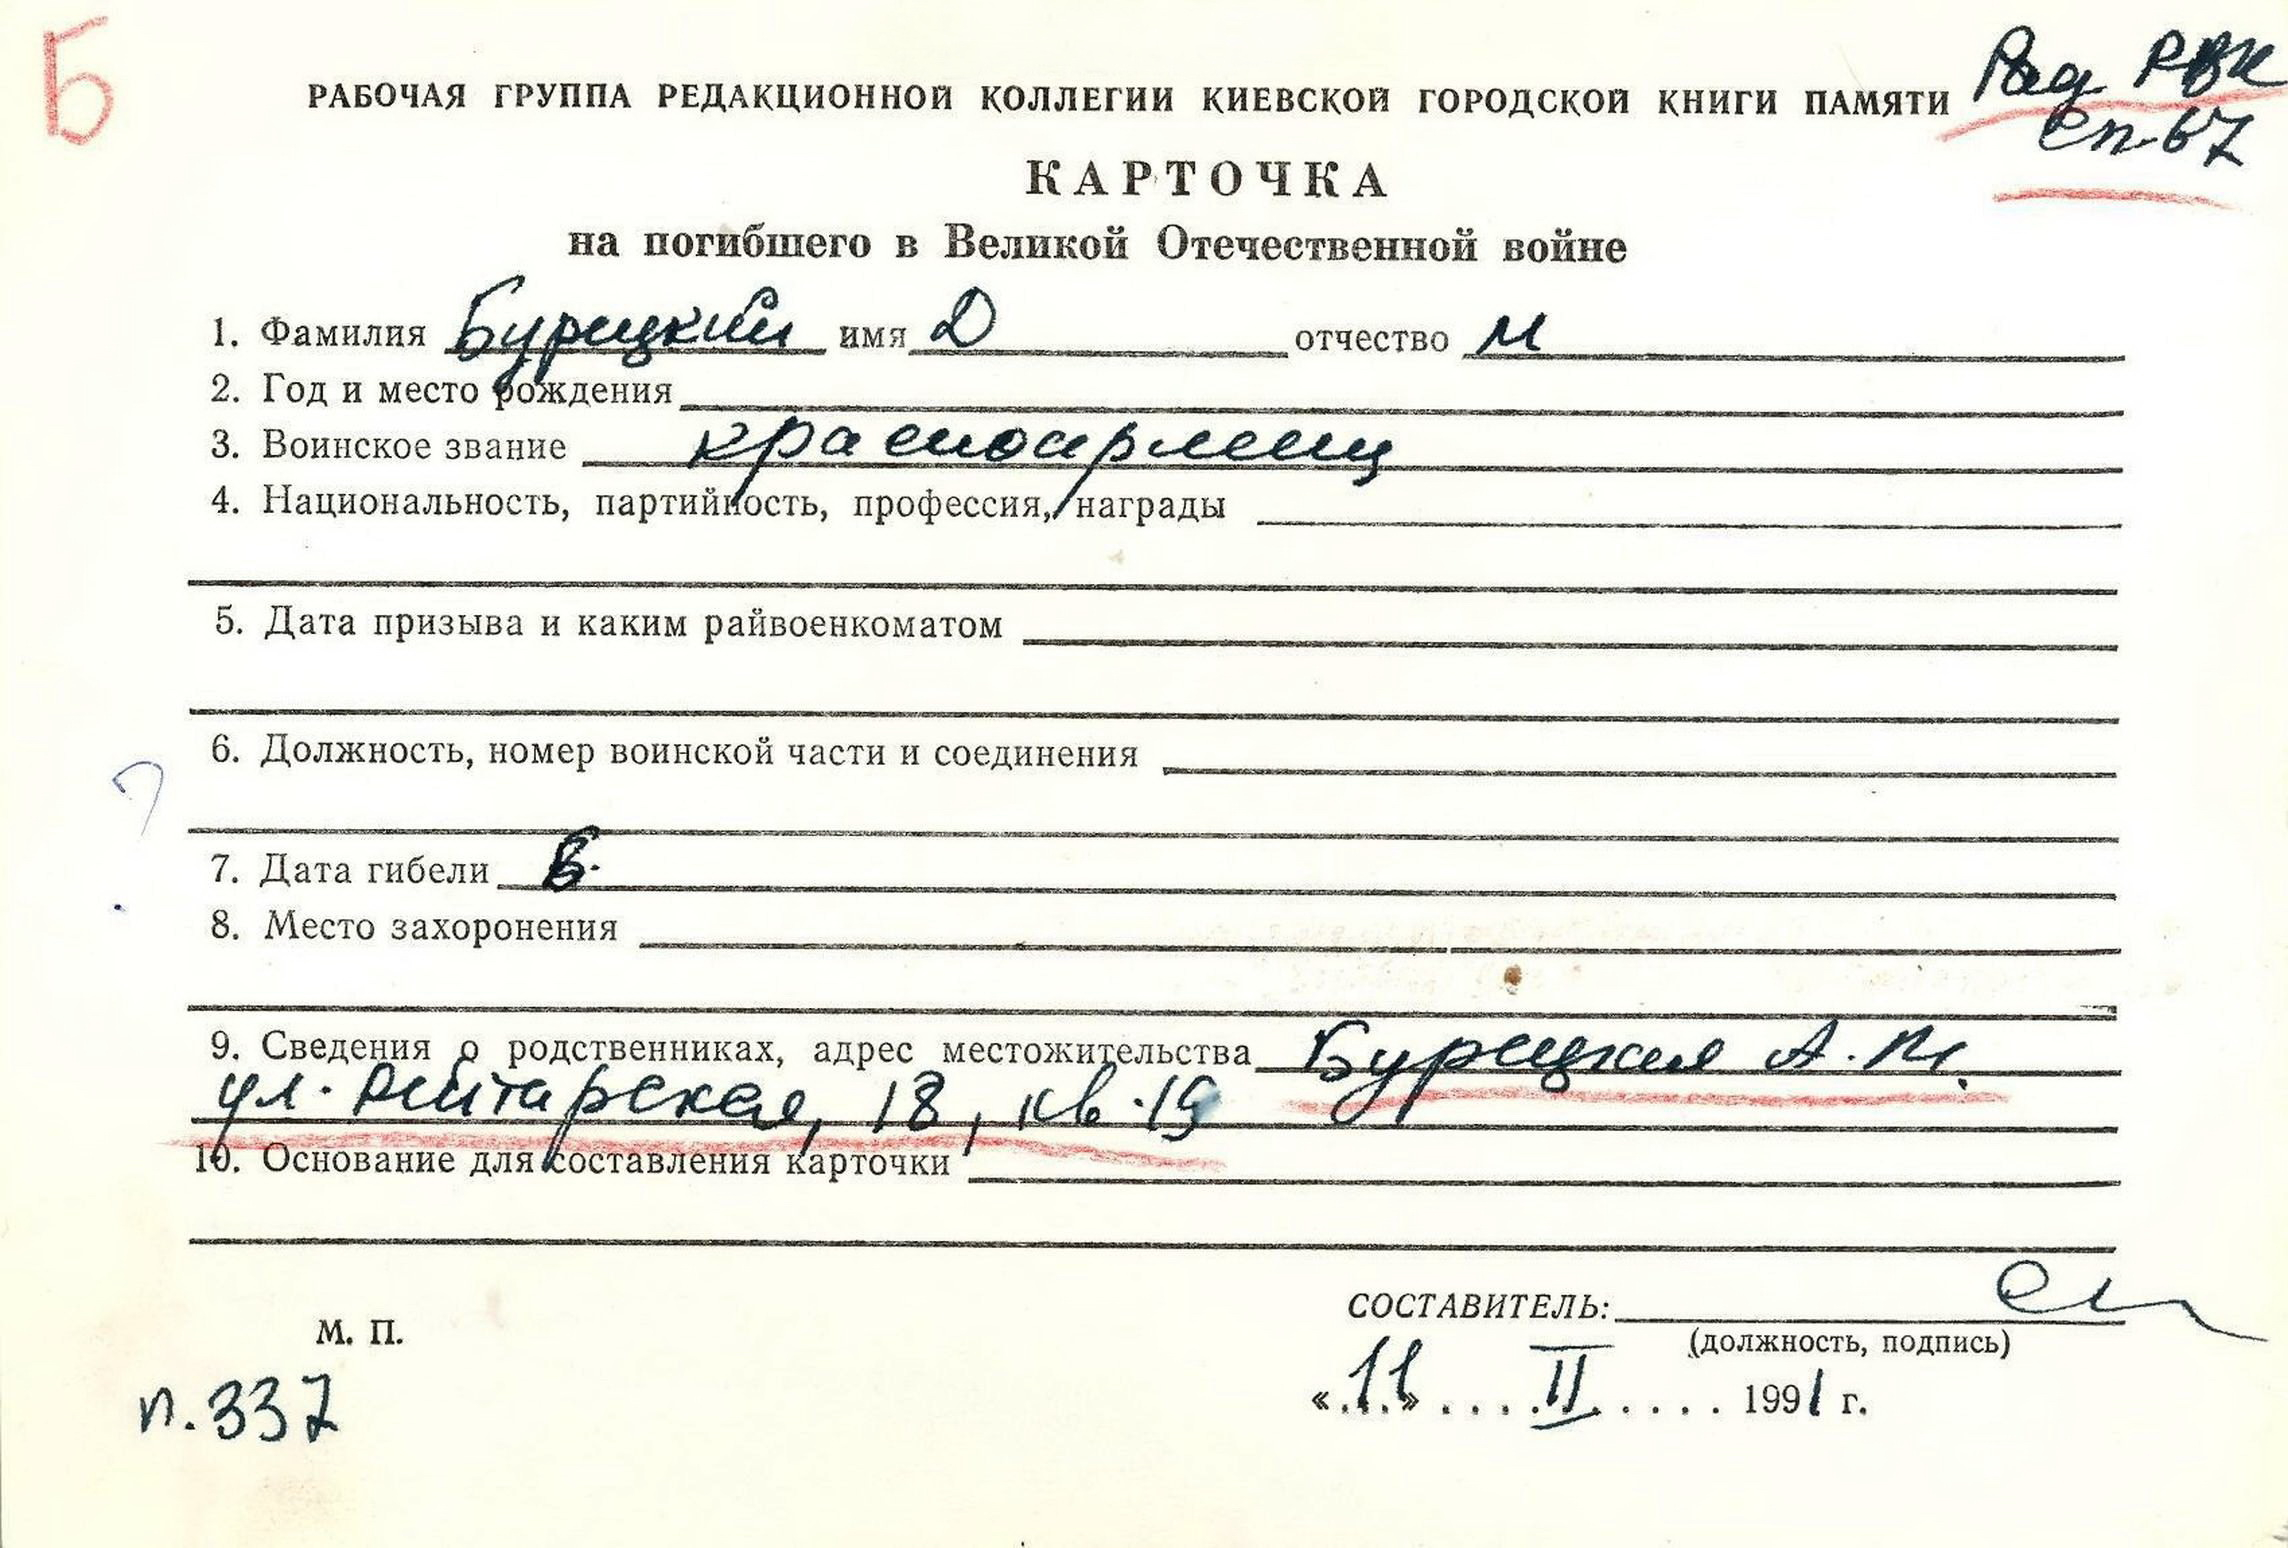 Б
Рад РВК
РАБОЧАЯ ГРУППА РЕДАКЦИОННОЙ КОЛЛЕГИИ КИЕВСКОЙ ГОРОДСКОЙ КНИГИ ПАМЯТИ
сп-67
КАРТОЧКА
на погибшего в Великой Отечественной войне
1. Фамилия Бурицкий имя Д отчество М
2. Год и место рождения
3. Воинское звание красноармеец
4. Национальность, партийность, профессия, награды
5. Дата призыва и каким райвоенкоматом
6. Должность, номер воинской части и соединения
?
7. Дата гибели
8. Место захоронения
9. Сведения о родственниках, адрес местожительства Бурицкая А.М.
ул. Рейтарская, 18, кв. 19
10. Основание для составления карточки
СОСТАВИТЕЛЬ:
М. П.
(должность, подпись)
п. 337
«11» .... II ..... 1991 г.